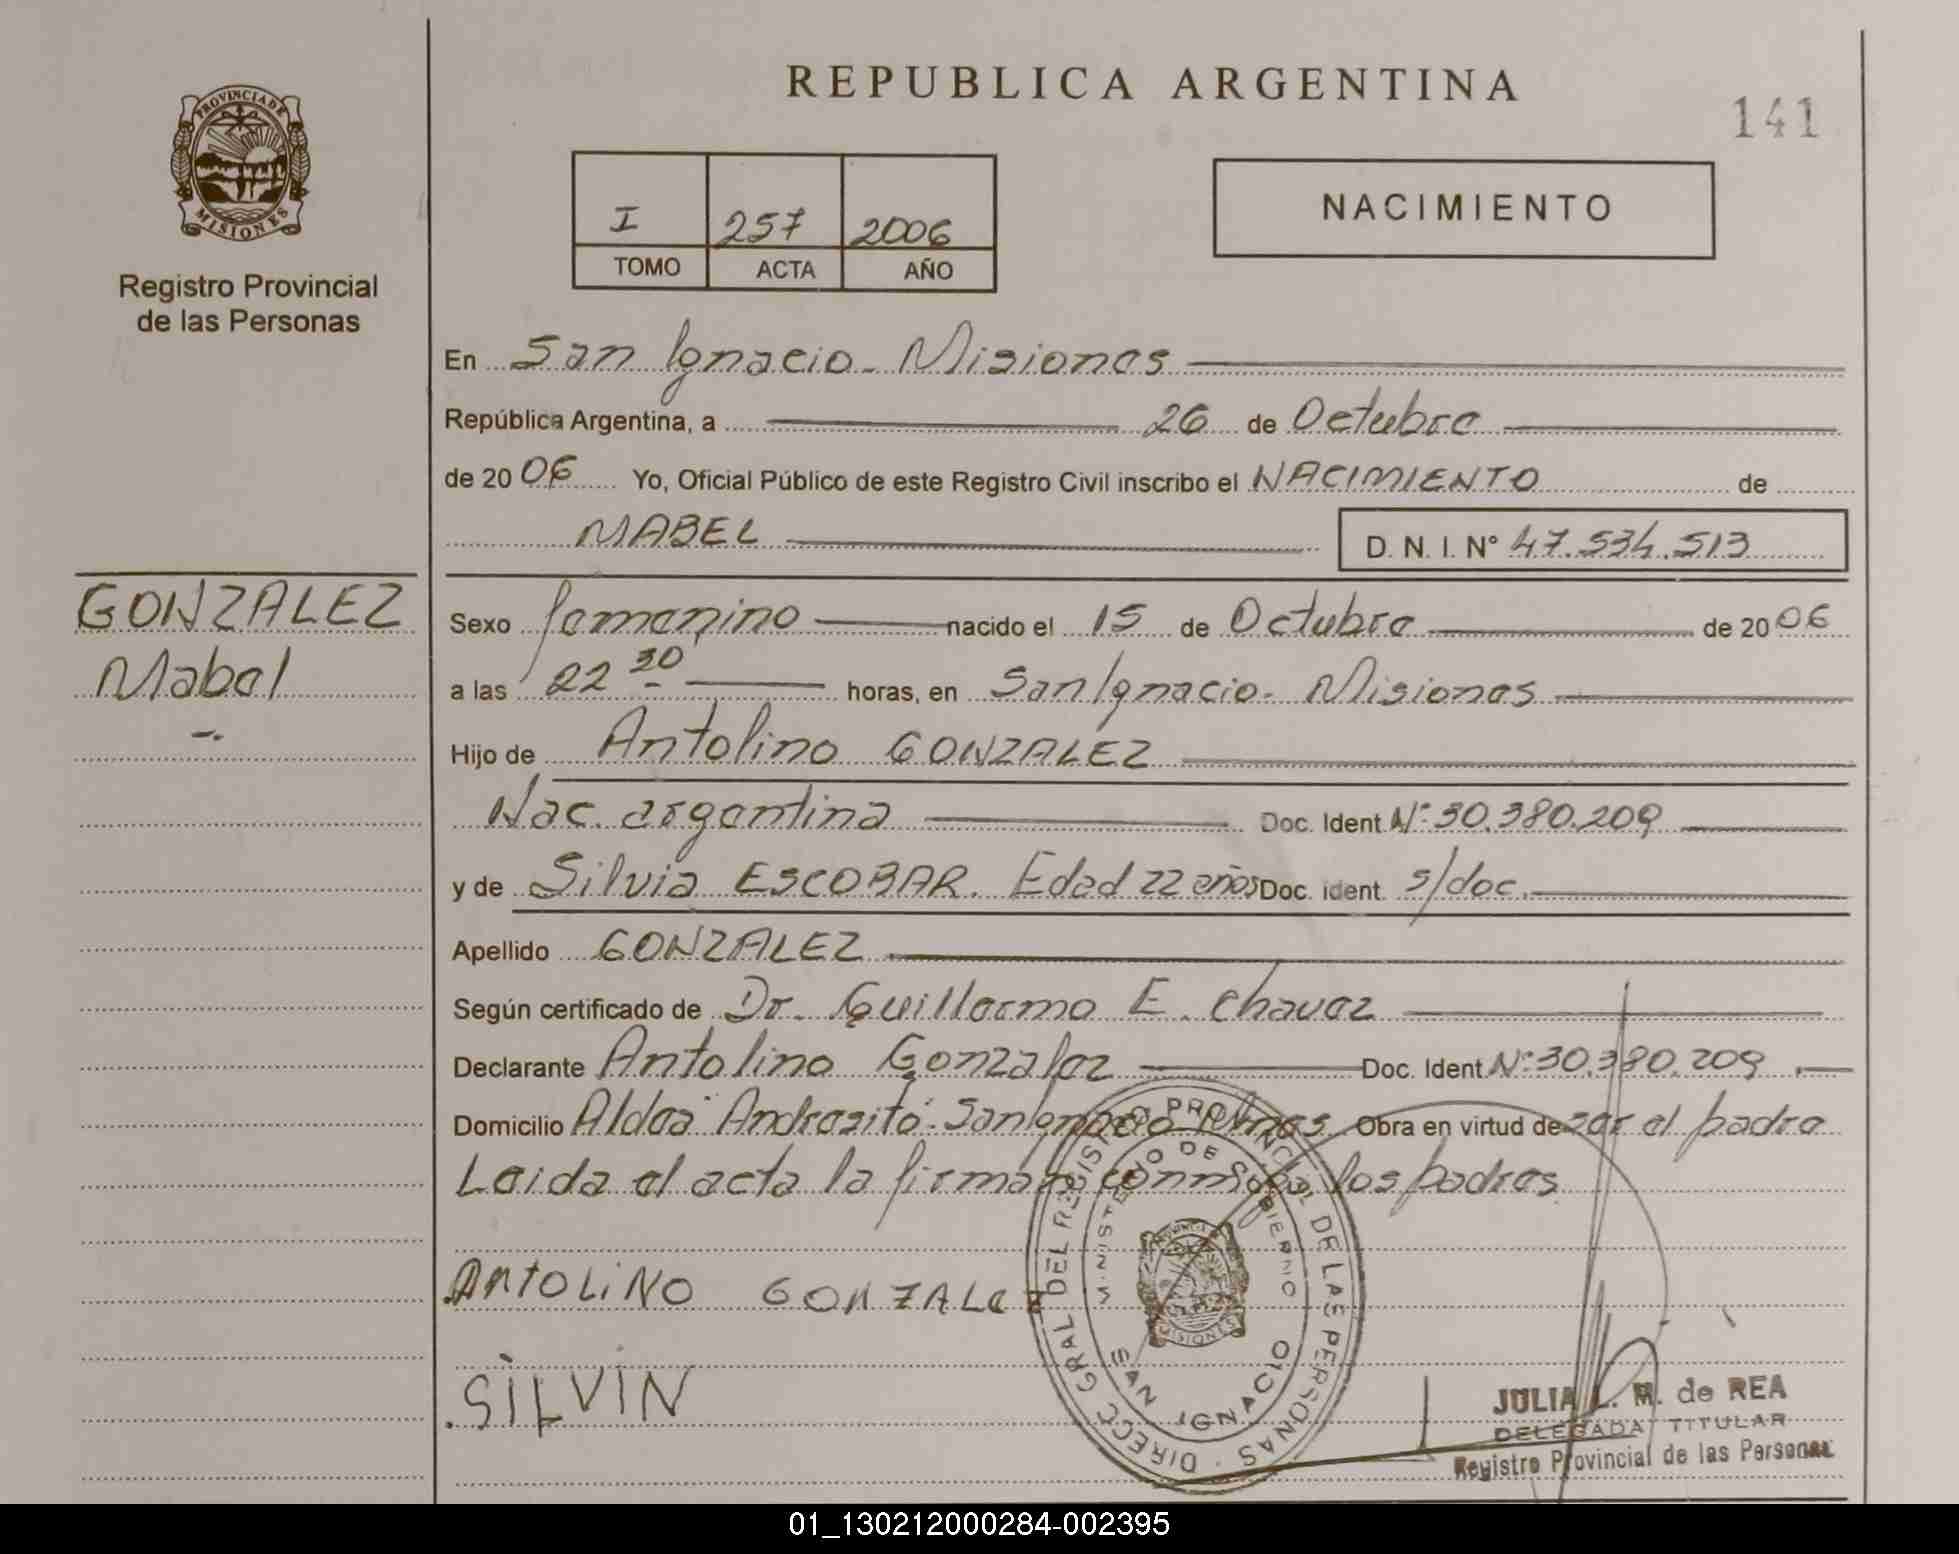 REPUBLICA ARGENTINA
141
PROVINCIA DE
MISIONES
Registro Provincial
de las Personas
I 257 2006
TOMO ACTA AÑO
NACIMIENTO
En San Ignacio - Misiones
República Argentina, a 26 de Octubre
de 2006 Yo, Oficial Público de este Registro Civil inscribo el NACIMIENTO de
MABEL D. N. I. N° 47.534.513
GONZALEZ
Mabel
Sexo femenino nacido el 15 de Octubre de 2006
a las 22 30 horas, en San Ignacio - Misiones
Hijo de Antolino GONZALEZ
Nac. argentina Doc. Ident N° 30.380.209
y de Silvia ESCOBAR. Edad 22 años Doc. ident. s/doc.
Apellido GONZALEZ
Según certificado de Dr. Guillermo E. Chavez
Declarante Antolino Gonzalez Doc. Ident N° 30.380.209
Domicilio Aldea Andresito - San Ignacio Mnes Obra en virtud de ser el padre
Leida el acta la firman conmigo los padres
ANTOLINO GONZALEZ
SILVIN
DIRECC. GRAL DEL REGISTRO PROVINCIAL DE LAS PERSONAS
MINISTERIO DE GOBIERNO
SAN IGNACIO
MISIONES
JULIA L. M. de REA
DELEGADA TITULAR
Registro Provincial de las Personas
01_130212000284-002395